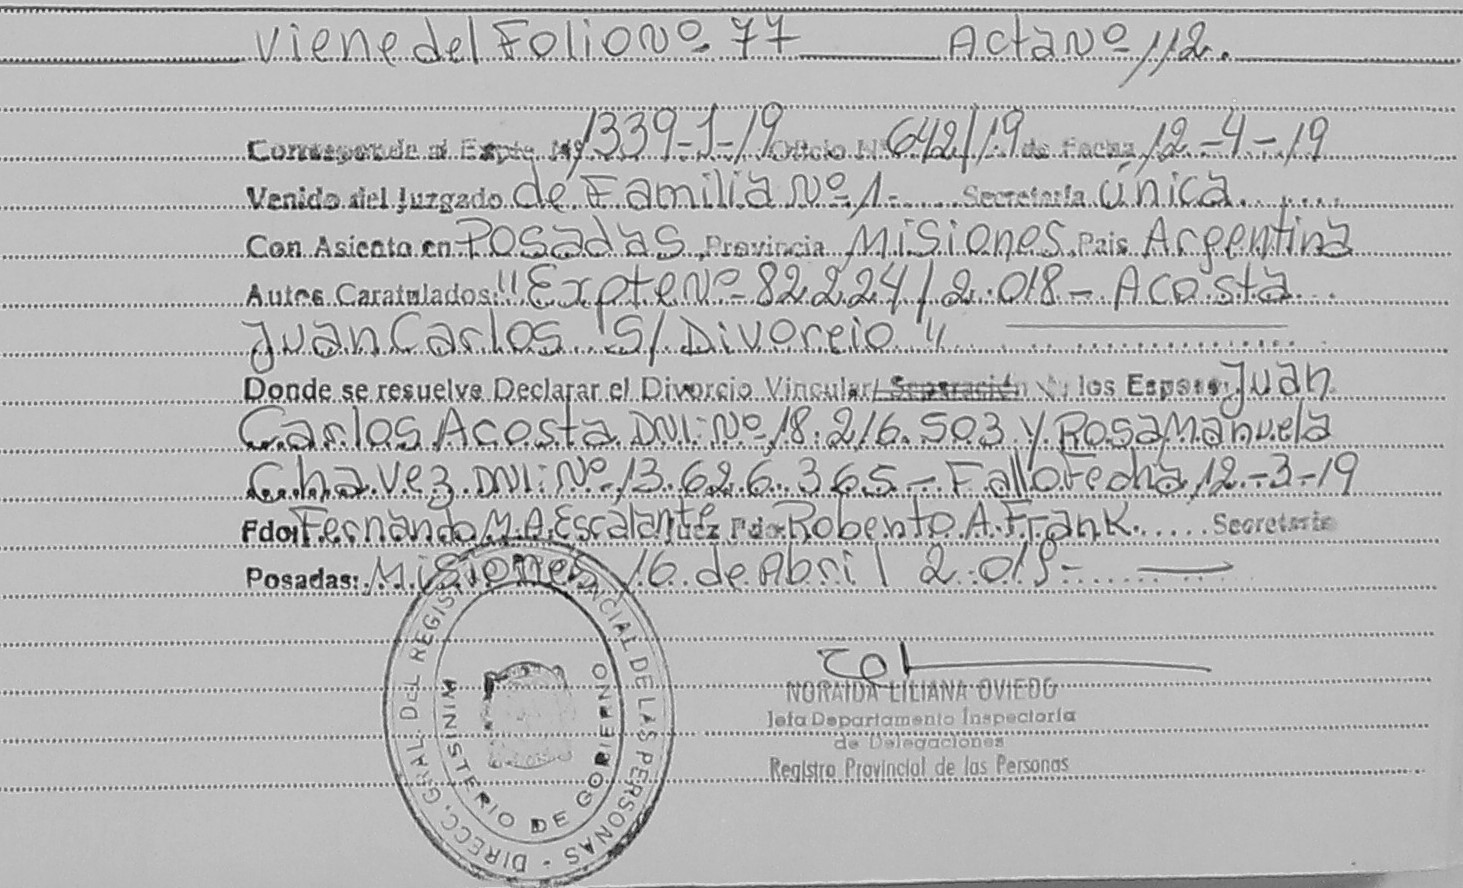 Viene del Folio Nº 77 Acta Nº 112.
Corresponde al Expte Nº 1339-J-19 Oficio Nº 642/19 de fecha 12-4-19
Venido del Juzgado de Familia Nº 1- Secretaría Única
Con Asiento en Posadas Provincia Misiones País Argentina
Autos Caratulados: "Expte Nº 82224/2.018 - Acosta
Juan Carlos S/ Divorcio"
Donde se resuelve Declarar el Divorcio Vincular/ Separación de los Esposos: Juan
Carlos Acosta DNI: Nº 18.216.503 y Rosa Manuela
Chavez DNI: Nº 13.626.365 - Fallo Fecha 12-3-19
Fdo: Fernando M.A. Escalante Juez Fdo: Roberto A. Frank Secretario
Posadas: Misiones 16 de Abril 2.019-
NORAIDA LILIANA OVIEDO
Jefa Departamento Inspectoría
de Delegaciones
Registro Provincial de las Personas
DIRECC. GRAL. DEL REGISTRO PROVINCIAL DE LAS PERSONAS -
MINISTERIO DE GOBIERNO